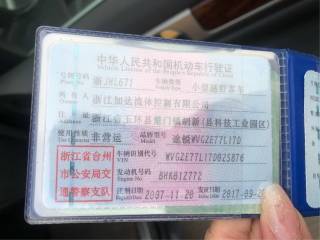 中华人民共和国机动车行驶证
Vehicle License of the People's Republic of China
号牌号码 浙JML671 车辆类型 小型越野客车
所有人 浙江加达流体控制有限公司
住址 浙江省玉环县楚门镇胡新(县科技工业园区)
使用性质 非营运 品牌型号 途锐WVGZE77L17D
浙江省台州
市公安局交
通警察支队
车辆识别代号 WVGZE77L17D025876
VIN
发动机号码 BHK01Z772
注册日期 2007-11-20 发证日期 2017-09-20